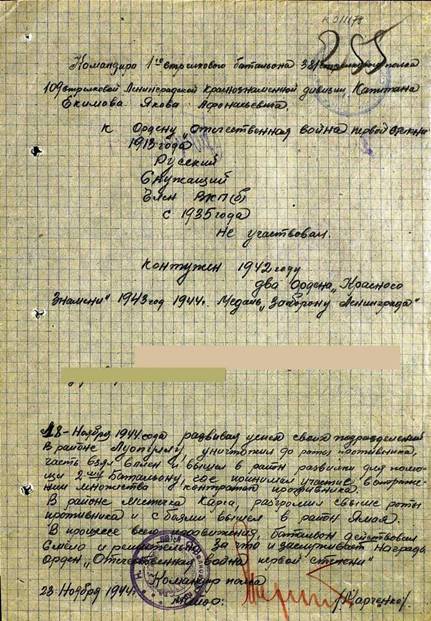 КО11179
255
Командира 1го стрелкового батальона 381 стрелкового полка
109 стрелковой Ленинградской Краснознаменной дивизии Капитана
Екимова Якова Афонасьевича.
к Ордену "Отечественная война первой
1913 года
Русский
Служащий
Член ВКП(б)
с 1935 года
не участвовал
контужен 1942 году
два Ордена "Красного
Знамени" 1943 год 1944г. Медаль "За оборону Ленинграда"
18-Ноября 1944 года развивал успех своих подразделений
В районе уничтожил до роты противника,
часть взял в плен и вышел в район развилки для помо-
щи 2му Батальону, где принимал участие в отраже-
нии множества контратак противника.
В районе местечка Карга, разгромил свыше роты
противника и с боями вышел в район
В процессе всего батальон действовал
смело и решительно. За что и заслуживает награды
орден "Отечественная война первой степени"
Командир полка
23 Ноября 1944г.
/Харченко/